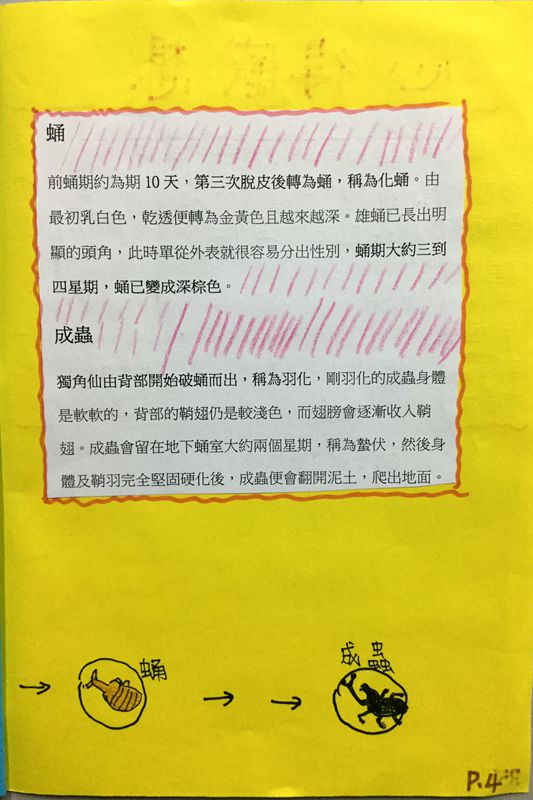 蛹
前蛹期約為期 10 天，第三次脫皮後轉為蛹，稱為化蛹。由
最初乳白色，乾透便轉為金黃色且越來越深。雄蛹已長出明
顯的頭角，此時單從外表就很容易分出性別，蛹期大約三到
四星期，蛹已變成深棕色。
成蟲
獨角仙由背部開始破蛹而出，稱為羽化，剛羽化的成蟲身體
是軟軟的，背部的鞘翅仍是較淺色，而翅膀會逐漸收入鞘
翅。成蟲會留在地下蛹室大約兩個星期，稱為蟄伏，然後身
體及鞘羽完全堅固硬化後，成蟲便會翻開泥土，爬出地面。
蛹
成蟲
P.4